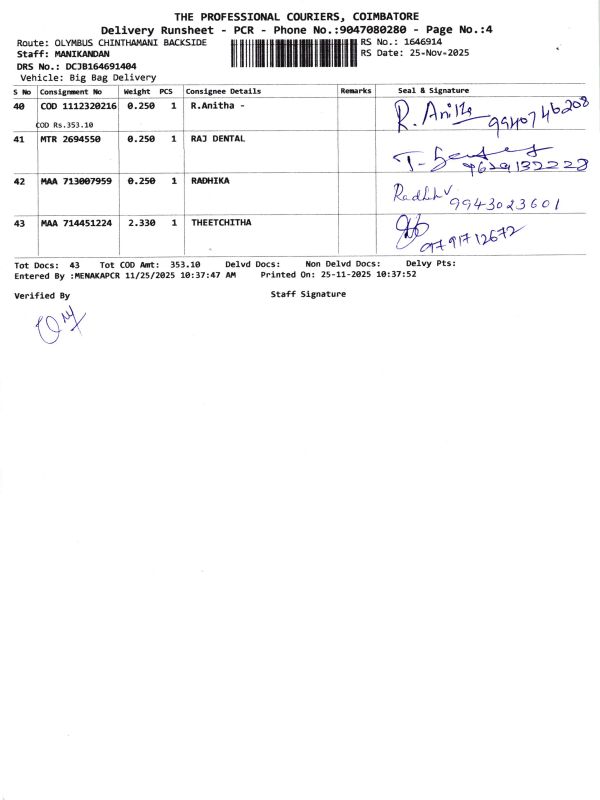 THE PROFESSIONAL COURIERS, COIMBATORE
Delivery Runsheet - PCR - Phone No.:9047080280 - Page No.:4
Route: OLYMBUS CHINTHAMANI BACKSIDE RS No.: 1646914
Staff: MANIKANDAN RS Date: 25-Nov-2025
DRS No.: DCJB164691404
Vehicle: Big Bag Delivery
S No Consignment No Weight PCS Consignee Details Remarks Seal & Signature
40 COD 1112320216 0.250 1 R.Anitha - R. Anitha 9940746208
COD Rs.353.10
41 MTR 2694550 0.250 1 RAJ DENTAL 9629132228
42 MAA 713007959 0.250 1 RADHIKA Radhik 9943023601
43 MAA 714451224 2.330 1 THEETCHITHA 9791712672
Tot Docs: 43 Tot COD Amt: 353.10 Delvd Docs: Non Delvd Docs: Delvy Pts:
Entered By :MENAKAPCR 11/25/2025 10:37:47 AM Printed On: 25-11-2025 10:37:52
Verified By Staff Signature